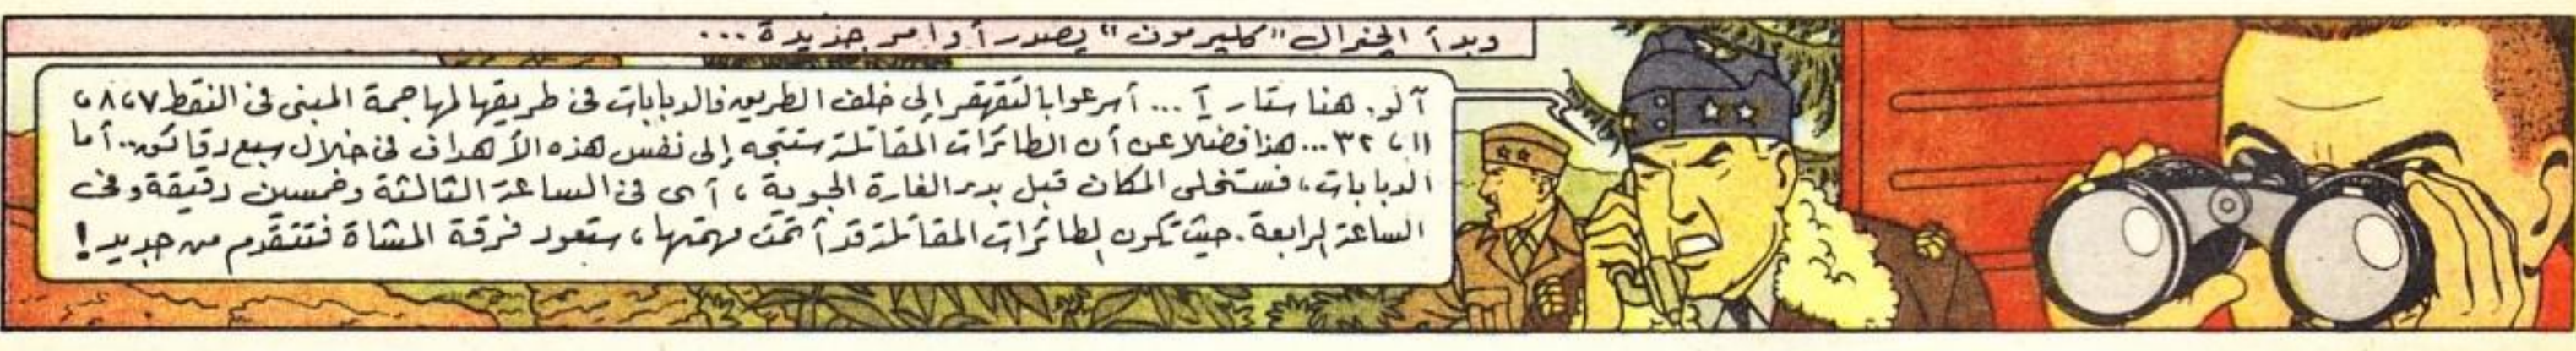 وبدأ الجنرال "كليرمون" يصدر أوامر جديدة...
آلو. هنا ستار آ ... أسرعوا بالتقهقر إلى خلف الطريق فالدبابات فى طريقها لمهاجمة المبنى فى النقط ٧، ٨،
١١، ٣٢... هذا فضلا عن أن الطائرات المقاتلة ستتجه إلى نفس هذه الأهداف فى خلال سبع دقائق.. أما
الدبابات، فستخلى المكان قبل بدء الغارة الجوية، أى فى الساعة الثالثة وخمسين دقيقة وفى
الساعة الرابعة. حيث تكون الطائرات المقاتلة قد أتمت مهمتها، ستعود فرقة المشاة فتتقدم من جديد!